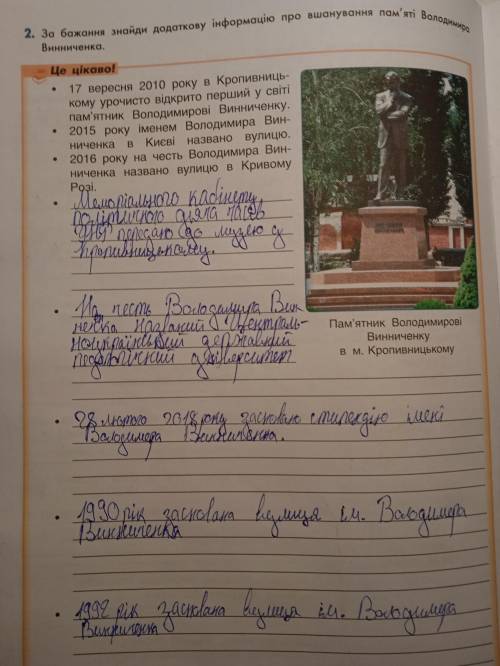 2. За бажання знайди додаткову інформацію про вшанування пам'яті Володимира
Винниченка.
Це цікаво!
• 17 вересня 2010 року в Кропивниць-
кому урочисто відкрито перший у світі
пам'ятник Володимирові Винниченку.
• 2015 року іменем Володимира Вин-
ниченка в Києві названо вулицю.
• 2016 року на честь Володимира Вин-
ниченка названо вулицю в Кривому
Розі.
• Меморіального кабінету
політичного діяча часів
УНР передано до музею у
Кропивницькому.
• На честь Володимира Вин
неченка названий Централь-
ноукраїнський державний
педагогічний університет
Пам'ятник Володимирові
Винниченку
в м. Кропивницькому
• 28 лютого 2018 року засновано стипендію імені
Володимера Винниченка.
• 1990 рік заснована вулиця ім. Володимера
Винниченка
• 1992 рік заснована вулиця ім. Володимера
Винниченка